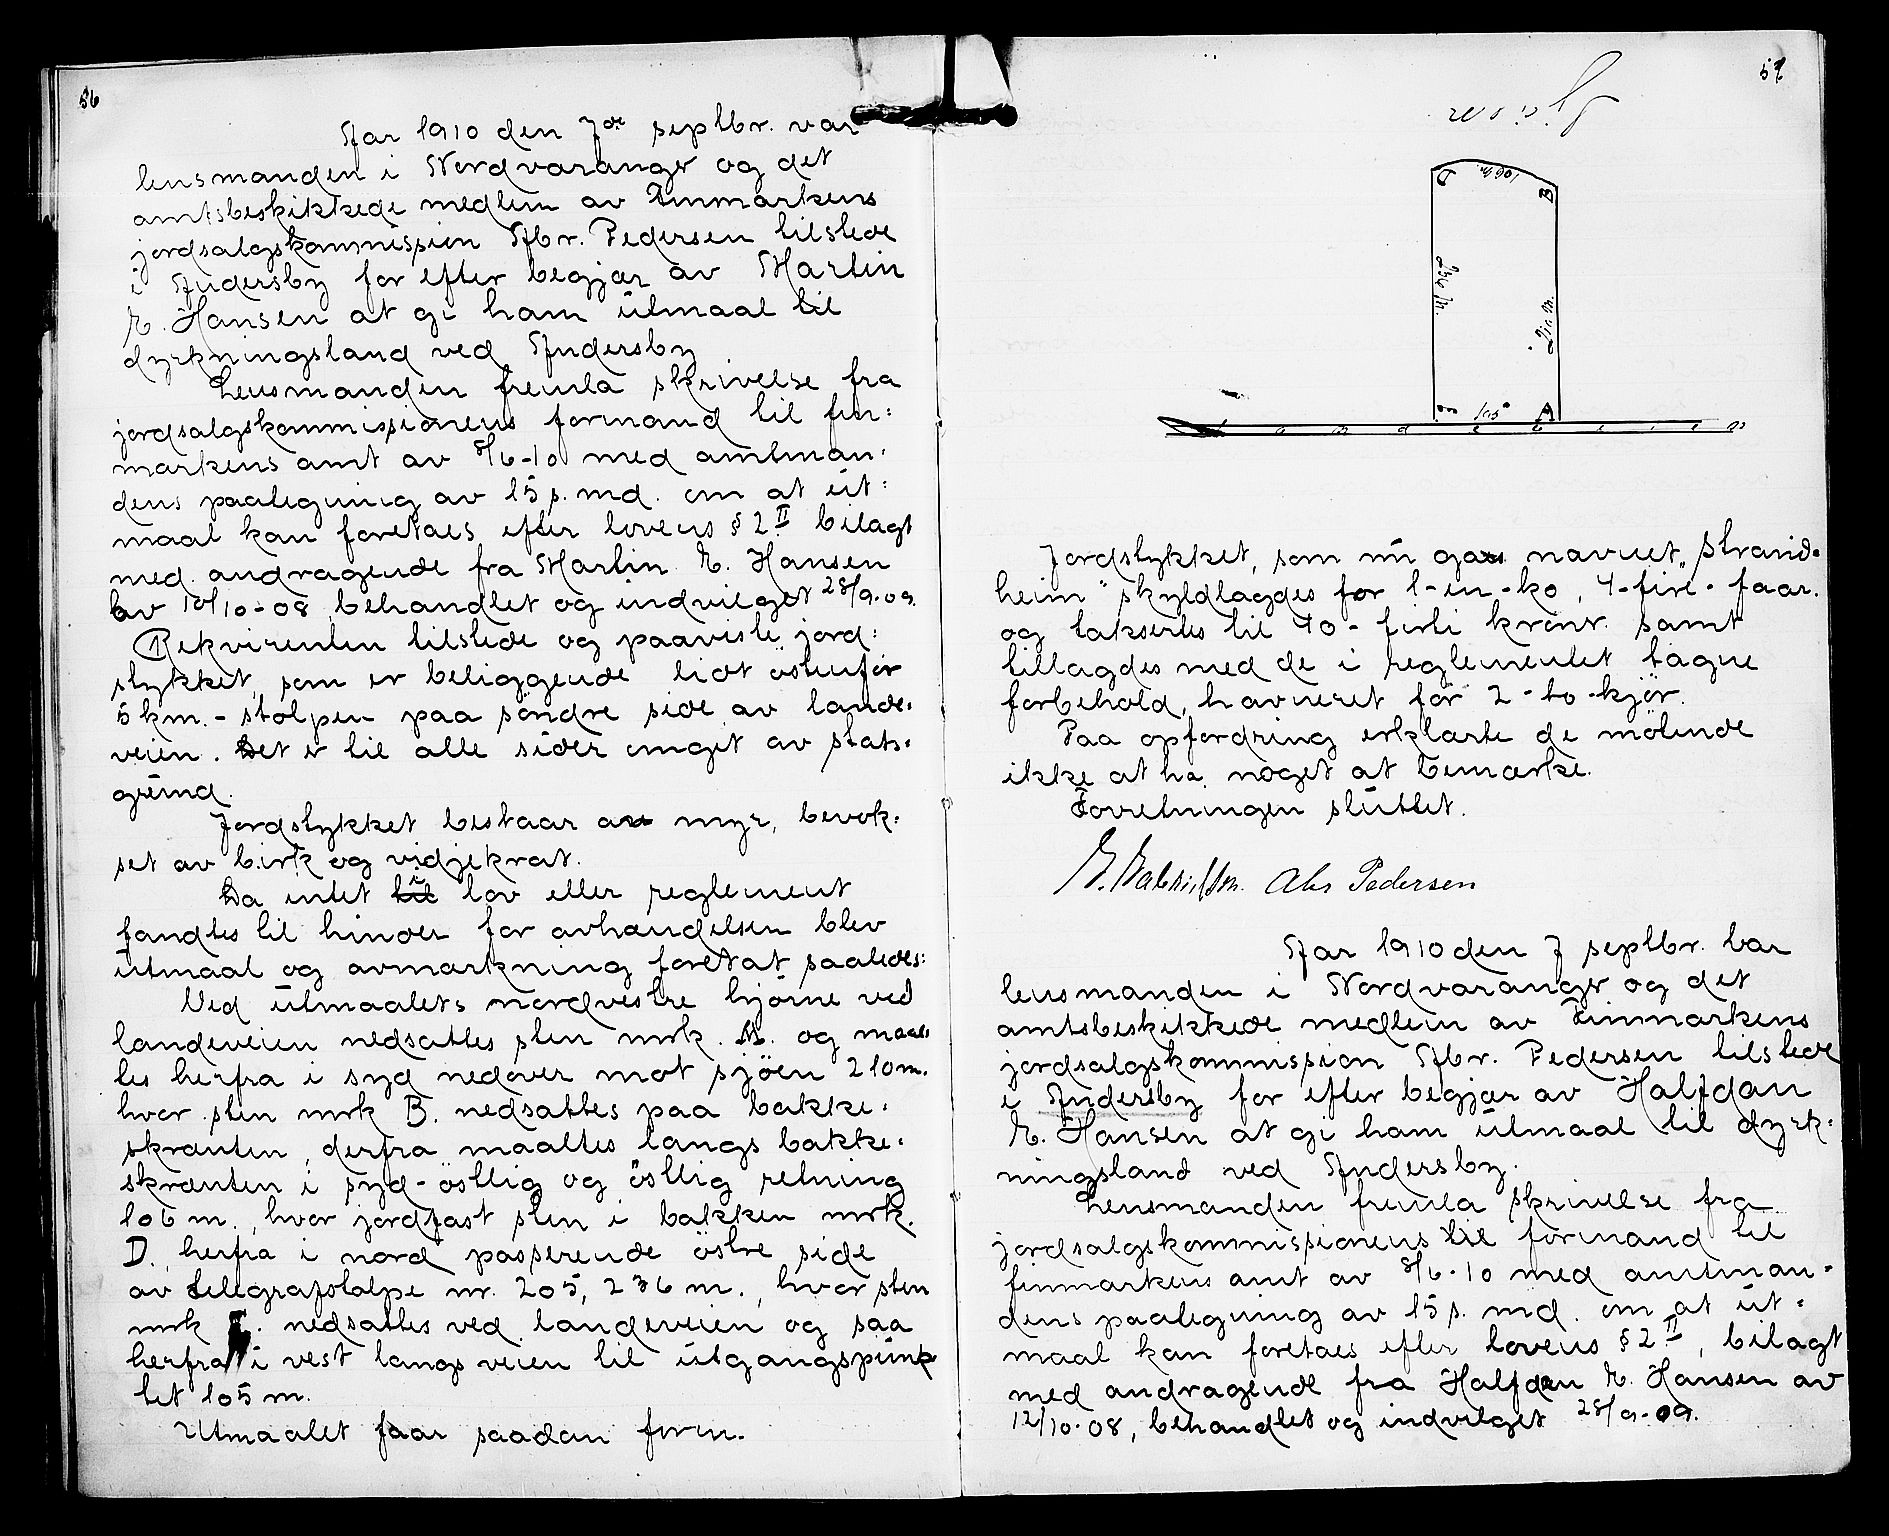 56
Aar 1910 den 7de septbr. var
lensmanden i Nordvaranger og det
amtsbeskikkede medlem av Finmarkens
jordsalgskommission Abr. Pedersen tilstede
i Andersby for efter begjær av Martin
E. Hansen at gi ham utmaal til
dyrkningsland ved Andersby
Lensmanden fremla skrivelse fra
jordsalgskommissionens formand til fin:
markens amt av 8/6-10 med amtman:
dens paategning av 15 s. md. om at ut:
maal kan foretaes efter lovens § 2 II bilagt
med andragende fra Martin E. Hansen
av 10/10-08 behandlet og indvilget 28/9-09.
Rekvirenten tilstede og paaviste jord:
stykket, som er beliggende lidt östenför
5 km.-stolpen paa söndre side av lande:
veien. Det er til alle sider omgit av stats:
grund.
Jordstykket bestaar av myr, bevok:
set av birk og vidjekrat.
Da intet i lov eller reglement
fandtes til hinder for avhændelsen blev
utmaal og avmarkning foretat saaledes:
Ved utmaalets nordvestre hjörne ved
landeveien nedsattes sten mrk. A. og maal
tes herfra i syd nedover mot sjöen 210 m.
hvor sten mrk B. nedsattes paa bakke:
skrænten, derfra maaltes langs bakke:
skrænten i syd-östlig og östlig retning
106 m., hvor jordfast sten i bakken mrk.
D., herfra i nord passerende östre side
av telegrafstolpe nr. 205, 236 m., hvor sten
mrk . nedsattes ved landeveien og saa
herfra i vest langs veien til utgangspunk
tet 105 m.
Utmaalet faar saadan form.
57
D 106 m. B
236 m.
210 m.
105 A
L a n d e v e i e n
Jordstykket, som nu gaves navnet „Strand:
heim" skyldlagdes for 1-en-ko, 4-fire-faar.
og taksertes til 40-firti kroner samt
tillagdes med de i reglementet tagne
forbehold, havneret for 2-to-kjör.
Paa opfordring erklærte de mötende
ikke at ha noget at bemærke.
Forretningen sluttet.
E. Gabrielsen. Abr Pedersen
Aar 1910 den 7 septbr. var
lensmanden i Nordvaranger og det
amtsbeskikkede medlem av Finmarkens
jordsalgskommission Abr. Pedersen tilstede
i Andersby for efter begjær av Halfdan
E. Hansen at gi ham utmaal til dyrk:
ningsland ved Andersby.
Lensmanden fremla skrivelse fra
jordsalgskommissionens til formand til
finmarkens amt av 8/6-10 med amtman:
dens paategning av 15 s. md. om at ut:
maal kan foretaes efter lovens § 2 II, bilagt
med andragende fra Halfdan E. Hansen av
12/10-08, behandlet og indvilget 28/9-09.